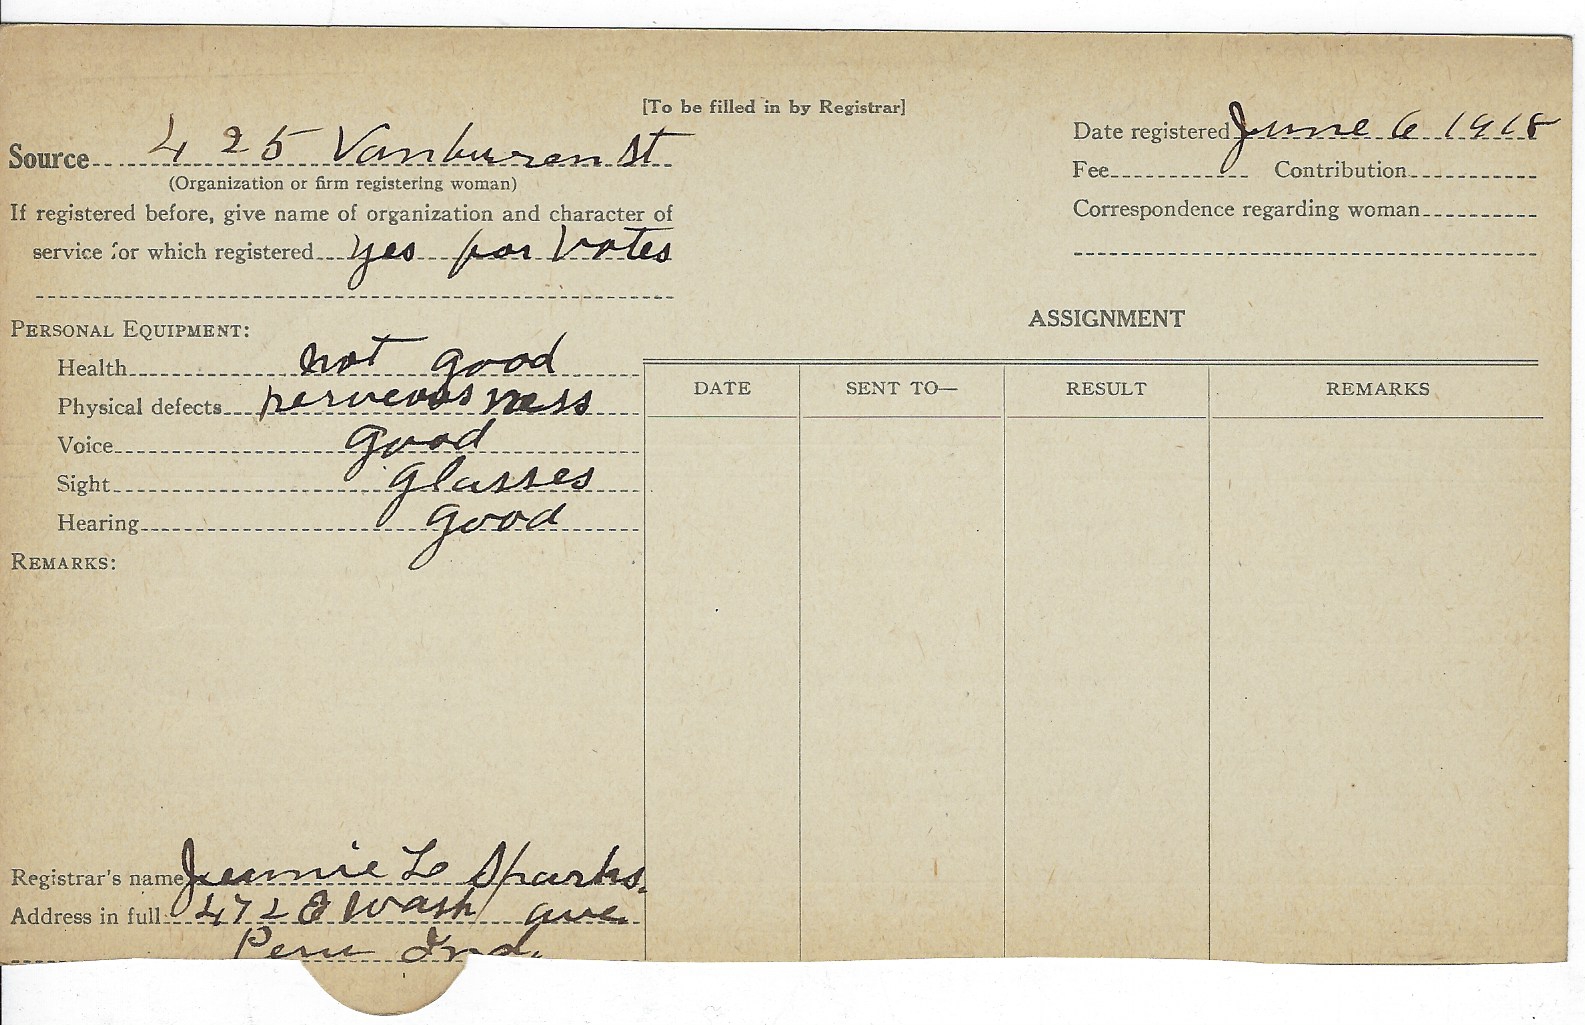 [To be filled in by Registrar]
Source 425 Vanburen St
(Organization or firm registering woman)
If registered before, give name of organization and character of
service for which registered yes for Votes
Date registered June 6 1918
Fee Contribution
Correspondence regarding woman
PERSONAL EQUIPMENT:
Health not good
Physical defects nerveousness
Voice good
Sight glasses
Hearing good
REMARKS:
ASSIGNMENT
DATE SENT TO— RESULT REMARKS
Registrar's name Jennie L Sparks.
Address in full 472 E Wash ave
Peru Ind.